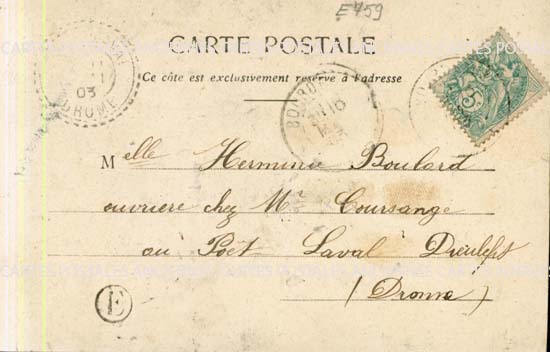 E459
CARTE POSTALE
Ce côté est exclusivement réservé à l'adresse
03
DROME
Melle Herminie Boulard
ouvriere chez Mr Coursange
au Poët Laval Dieulefit
(Drome)
E